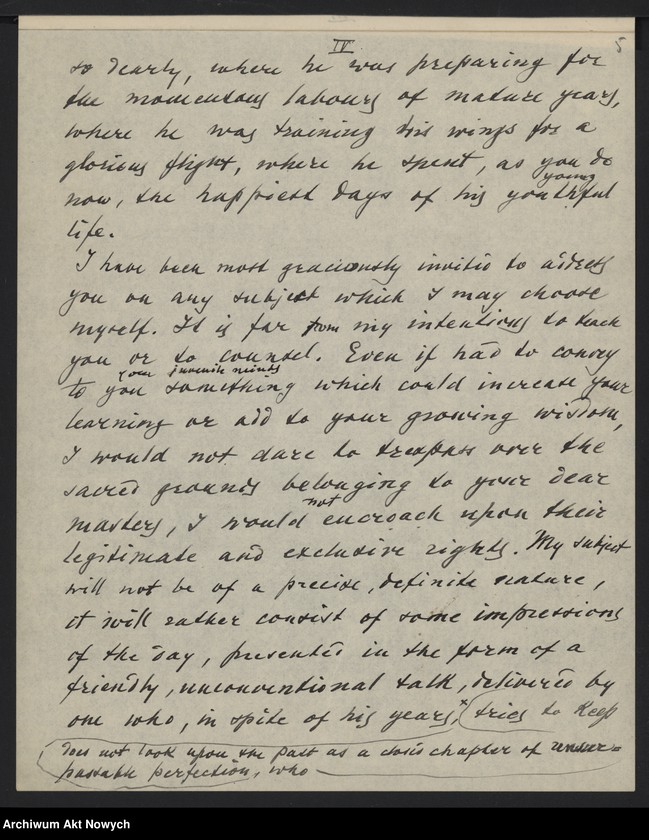 IV
5
so dearly, where he was preparing for
the momentous labours of mature years,
where he was training his wings for a
glorious flight, where he spent, as you do
young
now, the happiest days of his youthful
life.
I have been most graciously invitid to address
you on any subject which I may choose
myself. It is far from my intentions to teach
you or to counsel. Even if had to convey
your juvenile minds
to you something which could increase your
learning or add to your growing wisdom,
I would not dare to trespass over the
sacred grounds belonging to your dear
not
masters, I would encroach upon their
legitimate and exclusive rights. My subject
will not be of a precise, definite nature,
it will rather consist of some impressions
of the day, presented in the form of a
friendly, unconventional talk, delivered by
one who, in spite of his years,* tries to keep
does not look upon the past as a chapter of unsur=
passable perfection, who
Archiwum Akt Nowych